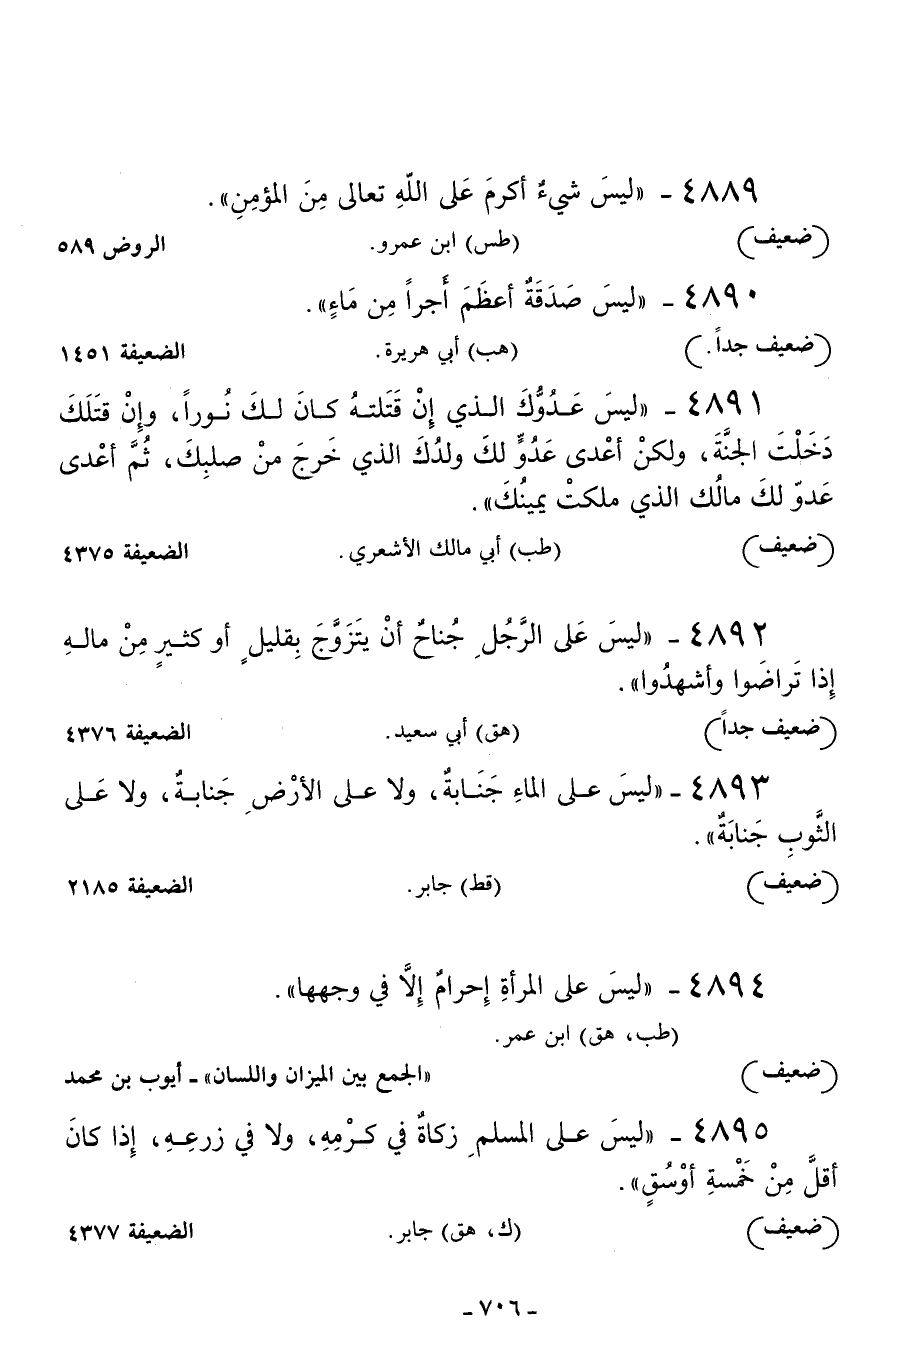 ٤٨٨٩ - «ليسَ شيءٌ أكرمَ عَلى اللّهِ تعالى مِنَ المؤمِنِ».
(ضعيف) (طس) ابن عمرو. الروض ٥٨٩
٤٨٩٠ - «ليسَ صَدَقَةٌ أعظَمَ أَجراً مِن مَاءٍ».
(ضعيف جداً.) (هب) أبي هريرة. الضعيفة ١٤٥١
٤٨٩١ - «ليسَ عَدُوُّكَ الذي إِنْ قَتَلتهُ كانَ لكَ نُوراً، وإِنْ قتَلَكَ
دَخَلْتَ الجنَّةَ، ولكنْ أعْدى عَدُوٍّ لكَ ولدُكَ الذي خَرجَ منْ صلبِكَ، ثُمَّ أعْدى
عَدوّ لكَ مالُك الذي ملكتْ يمينُكَ».
(ضعيف) (طب) أبي مالك الأشعري. الضعيفة ٤٣٧٥
٤٨٩٢ - «ليسَ عَلى الرَّجُلِ جُناحٌ أنْ يتَزَوَّجَ بِقليلٍ أو كثيرٍ مِنْ مالهِ
إِذا تَراضَوا وأشهدُوا».
(ضعيف جداً) (هق) أبي سعيد. الضعيفة ٤٣٧٦
٤٨٩٣ - «ليسَ على الماءِ جَنَابةٌ، ولا على الأرْضِ جَنابةٌ، ولا عَلى
الثَّوبِ جَنابَةٌ».
(ضعيف) (قط) جابر. الضعيفة ٢١٨٥
٤٨٩٤ - «ليسَ على المرأةِ إِحرامٌ إِلَّا في وجهها».
(طب، هق) ابن عمر.
(ضعيف) «الجمع بين الميزان واللسان» - أيوب بن محمد
٤٨٩٥ - «ليسَ على المسلمِ زكاةٌ في كرْمِهِ، ولا في زرعِهِ، إِذا كانَ
أقلَّ مِنْ خَمْسةِ أوْسُقٍ».
(ضعيف) (ك، هق) جابر. الضعيفة ٤٣٧٧
- ٧٠٦ -